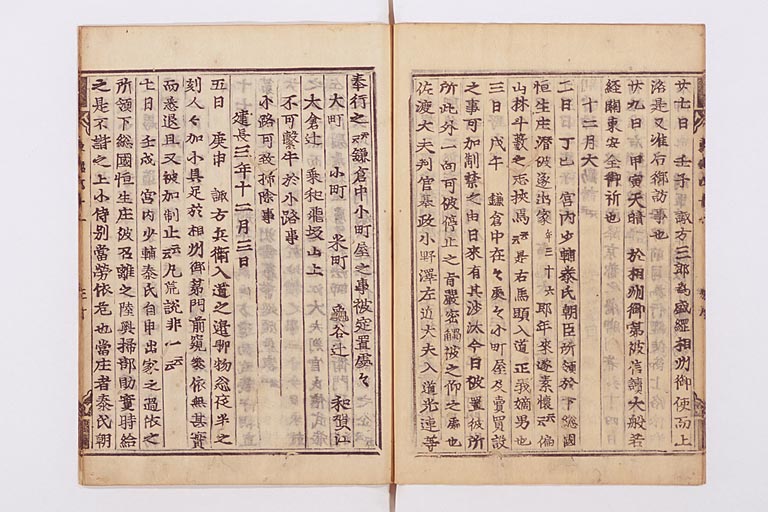 廿七日 壬子 諏方三郎為盛經相州御使而上
洛是又准后御訪事也
廿九日 甲寅 天晴 於相州御第被信讀大般若
經關東安全御祈也
十二月大
二日 丁巳 宮内少輔泰氏朝臣所領於下総國
恒生庄潜被遂出家 年三十六 即年来遂素懐云云 偏
山林斗藪之志挟焉云云 是右馬頭入道正義嫡男也
三日 戊午 鎌倉中在々處々小町屋及賣買設
之事可加制禁之由日来有其沙汰今日被置彼所
所此外一向可被停止之旨嚴密觸被之仰之處也
佐渡大夫判官基政小野澤左近大夫入道光連等
奉行之云云 鎌倉中小町屋之事被定置處々
大町 小町 米町 龜谷辻 和賀江
大倉辻 氣和飛坂山上
不可繫牛於小路事
小路可致掃除事
建長三年十二月三日
五日 庚申 諏方兵衛入道之邊聊物忩従半之
刻人々加小具足於相州御第門前窺衆依無其實
而悉退且又被加制止云云 凡荒説非一云云
七日 壬戌 宮内少輔泰氏自申出家之過依之
所領下総國恒生庄被召離之陸奥掃部助實時給
之是不諧之上小侍別當勞依危也當庄者泰氏朝